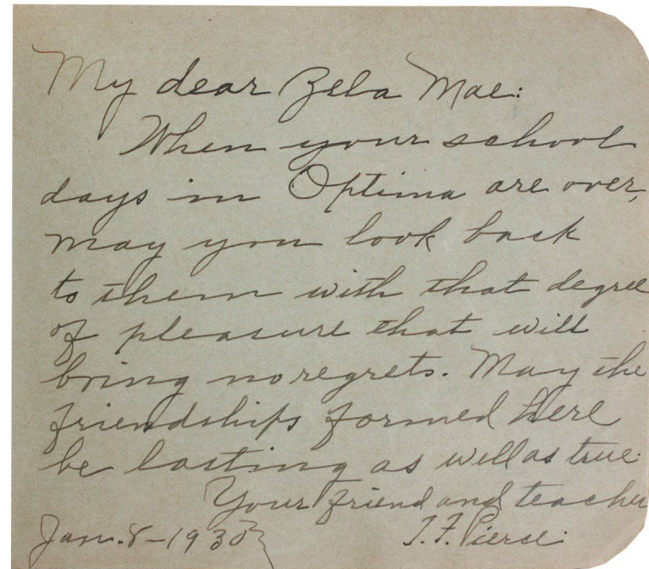 My dear Zela Mae:
When your school
days in Optima are over,
may you look back
to them with that degree
of pleasure that will
bring no regrets. May the
friendships formed here
be lasting as well as true.
Your friend and teacher
Jan. 8-1930 T. F. Pierce.